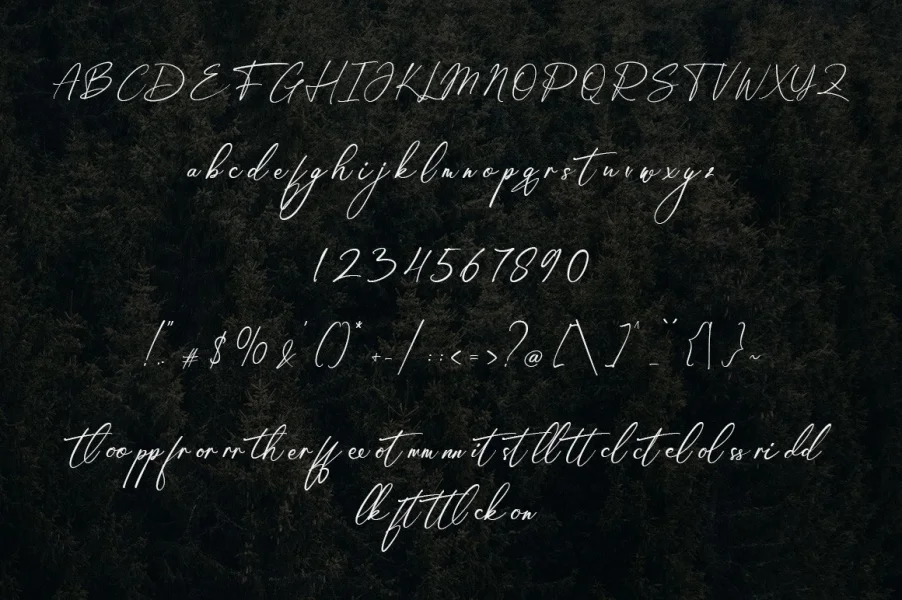 A B C D E F G H I J K L M N O P Q R S T V W X Y Z
a b c d e f g h i j k l m n o p q r s t u v w x y z
1 2 3 4 5 6 7 8 9 0
! " . , # $ % & ' ( ) * + - / : ; < = > ? @ [ \ ] ^ _ ` { | } ~
tl oo pp fr or rr th er ff ee ot mm nn it st ll tt cl ct el ol ss ri dd
lk ft ttl ck on